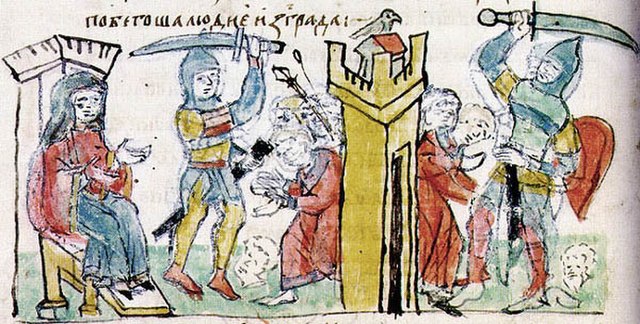 побегошалюдиеизграда: